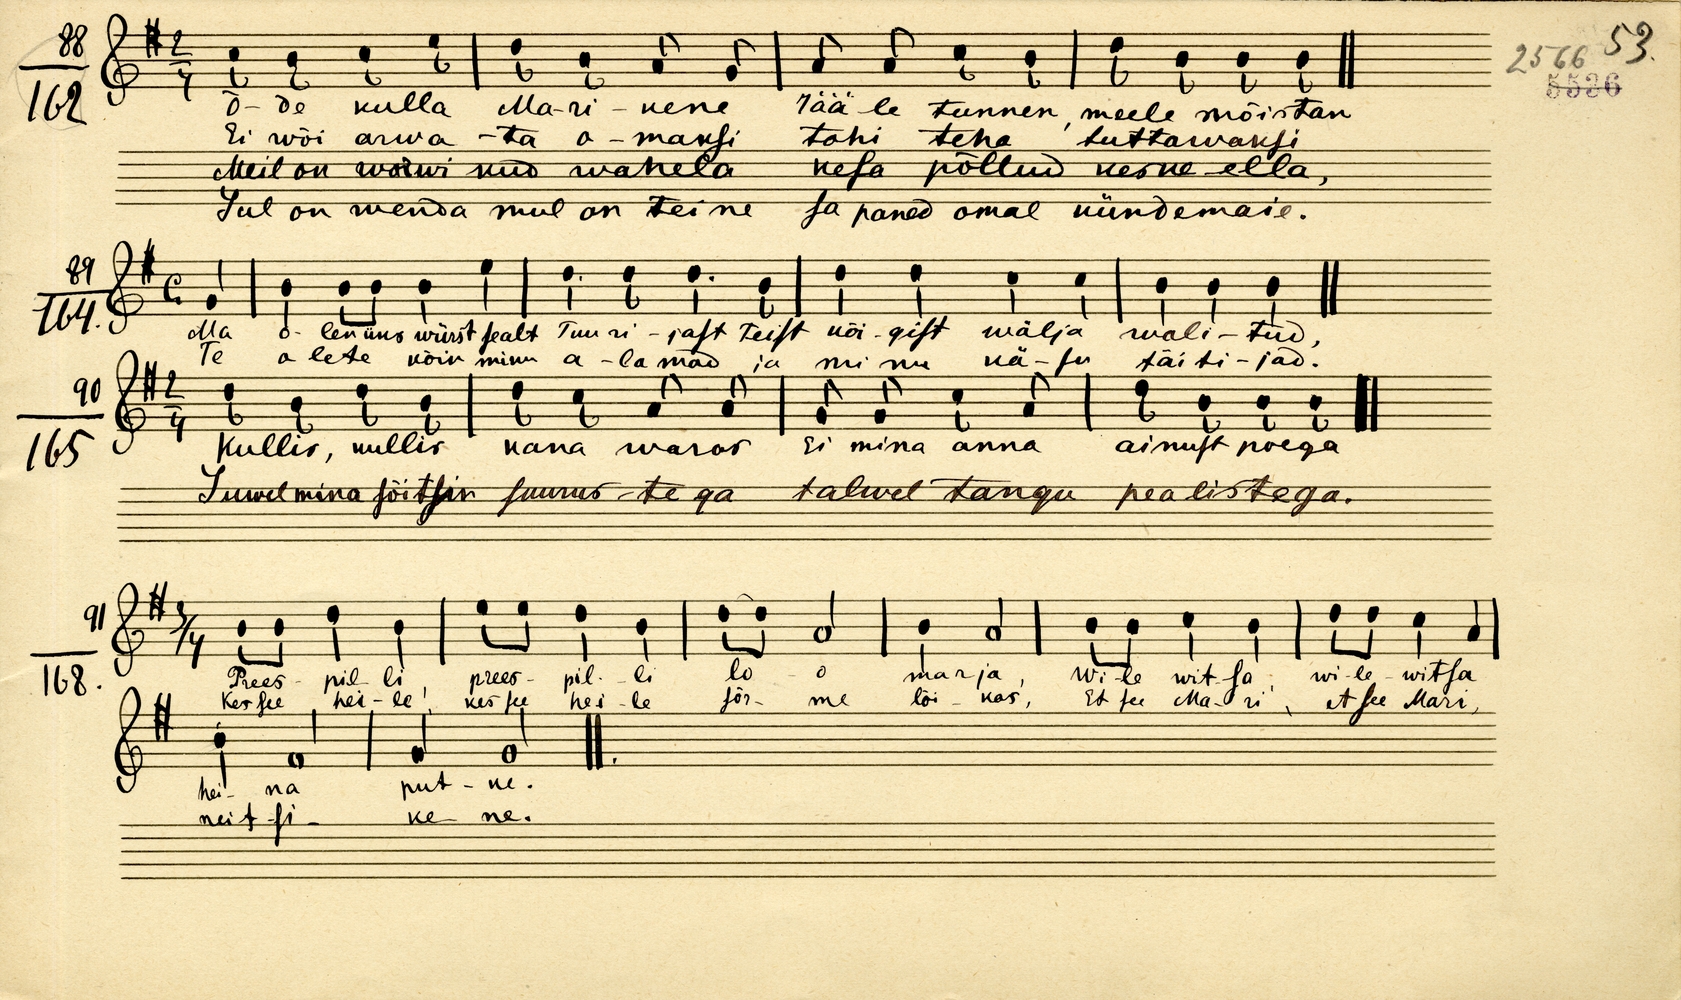 53.
2566
5536
88
162
2/4
Õ-de kulla Ma-ri-kene Hääle tunnen, meele mõistan
Ei wõi arwa-ta o-maksi tohi teha tuttawaksi
Meil on wäiwi nud wahela kesa põllud keske ella,
Sul on wenda mul on teine sa paned omal kündemaie.
89
164.
C
Ma o-len üns würst sealt Tuuri-jast Teist kõi-gist wälja wali-tud,
Te olete kõin minu a-lamad ja minu kä-su täiti-jad.
90
165
2/4
Kullis, kullis kana waras Ei mina anna ainust poega
Suwel mina sõitsin suurus-tega talwel tangu pealistega.
91
168.
3/4
Prees-pil-li, prees-pil-li lo-o marja, wi-le wit-sa wi-le-witsa
Kes see hei-le, kes see hei-le sõr-me lõi-kas, Et see Ma-ri, et see Mari,
hei-na put-ke.
neit-si-ke-ne.